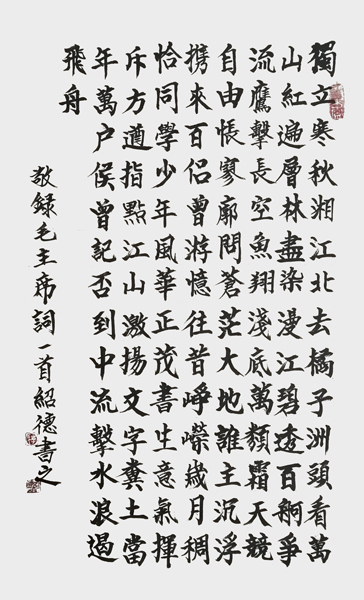 獨立寒秋湘江北去橘子洲頭看萬
山紅遍層林盡染漫江碧透百舸爭
流鷹擊長空魚翔淺底萬類霜天競
自由悵寥廓問蒼茫大地誰主沉浮
携來百侶曾游憶往昔崢嶸歲月稠
恰同學少年風華正茂書生意氣揮
斥方遒指點江山激揚文字糞土當
年萬户侯曾記否到中流擊水浪遏
飛舟
敬録毛主席詞一首紹德書之